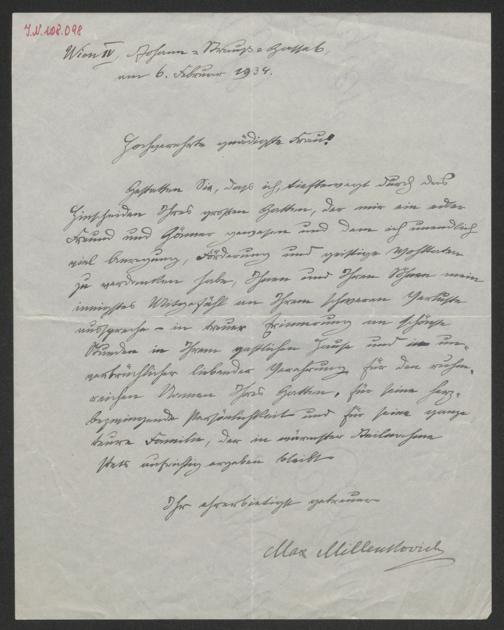 J.N. 108.098
Wien IV, Johann-Strauß-Gasse 6,
am 6. Februar 1934.
Hochverehrte gnädigste Frau!
Gestatten Sie, daß ich, tiefbewegt durch das
Hinscheiden Ihres großen Gatten, der mir ein edler
Freund und Gönner gewesen und dem ich unendlich
viel Anregung, Förderung und geistige Wohltaten
zu verdanken habe, Ihnen und Ihren Söhnen mein
innigstes Mitgefühl an Ihrem schweren Verluste
ausspreche – in treuer Erinnerung an schöne
Stunden in Ihrem gastlichen Hause und in un-
verbrüchlicher liebender Verehrung für den ruhm-
reichen Namen Ihres Gatten, für seine herz-
bezwingende Persönlichkeit und für seine ganze
teure Familie, der in wärmster Teilnahme
stets aufrichtig ergeben bleibt
Ihr ehrerbietigst getreuer
Max Millenkovich